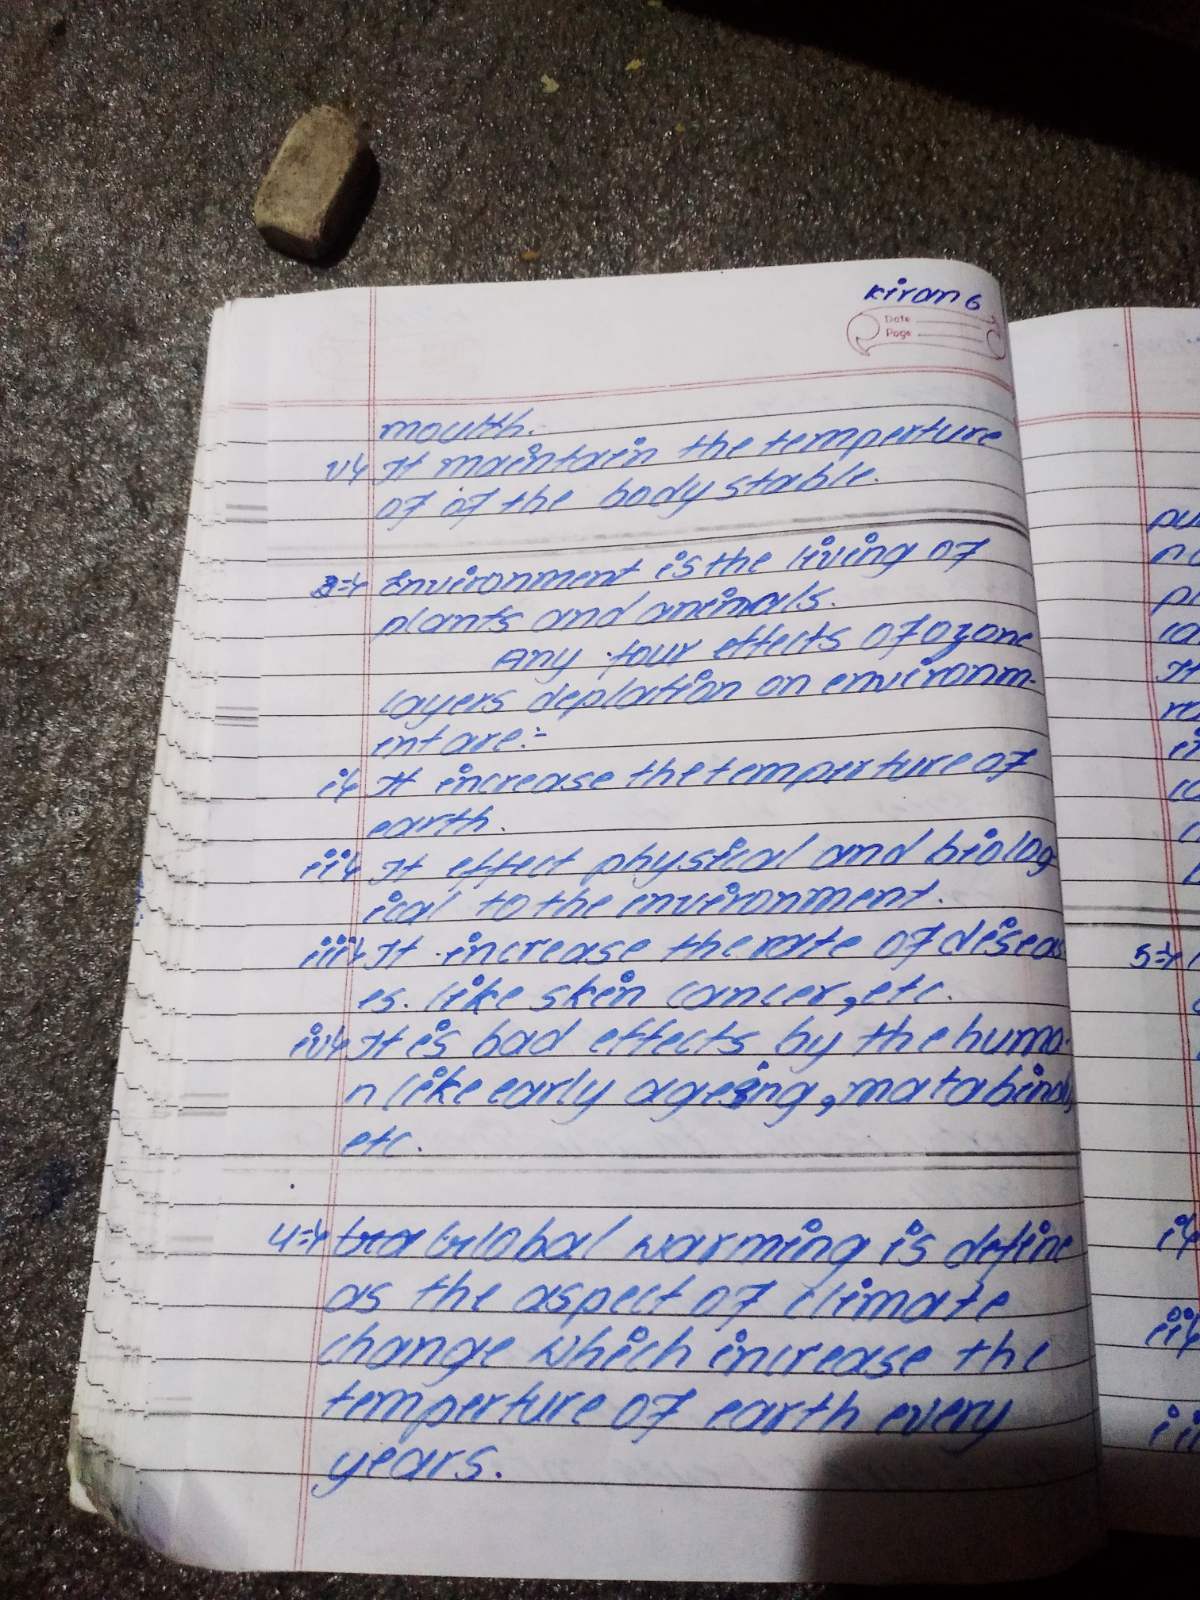 Kiran 6
Date
Page
moulth.
v) It maintain the temperture
of of the body stable.
3=> Environment is the living of
plants and animals.
Any four effects of ozone
layers deplation on environm-
int are:-
i) It increase the temperture of
earth.
ii) It effect physical and biolog
ical to the environment.
iii) It increase the rate of diseas
es. like skin cancer, etc.
iv) It is bad effects by the huma-
n like early ageing,
etc.
4=> Global warming is define
as the aspect of climate
change which increase the
temperture of earth every
years.
5=>
i)
ii)